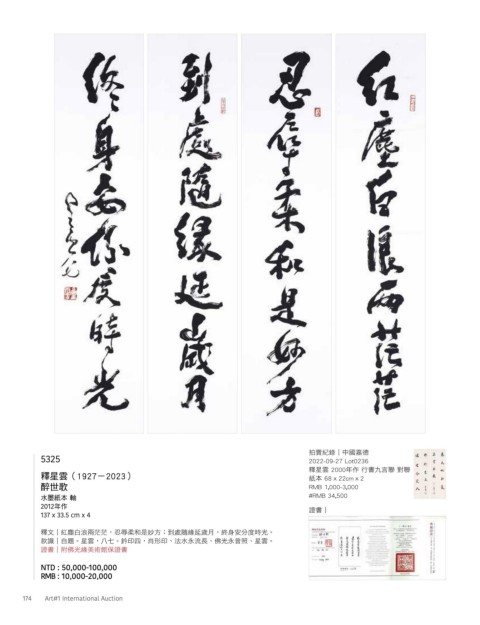 紅塵白浪兩茫茫
忍辱柔和是妙方
到處隨緣延歲月
終身安份度時光
5325
釋星雲（1927－2023）
醉世歌
水墨紙本 軸
2012年作
137 x 33.5 cm x 4
釋文｜紅塵白浪兩茫茫，忍辱柔和是妙方；到處隨緣延歲月，終身安分度時光。
款識｜自題。星雲，八七。鈐印四，肖形印、法水永流長、佛光永普照、星雲。
證書｜附佛光緣美術館保證書
NTD : 50,000-100,000
RMB : 10,000-20,000
拍賣紀錄｜中國嘉德
2022-09-27 Lot0236
釋星雲 2000年作 行書九言聯 對聯
紙本 68 x 22cm x 2
RMB 1,000-3,000
#RMB 34,500
證書｜
174 Art#1 International Auction